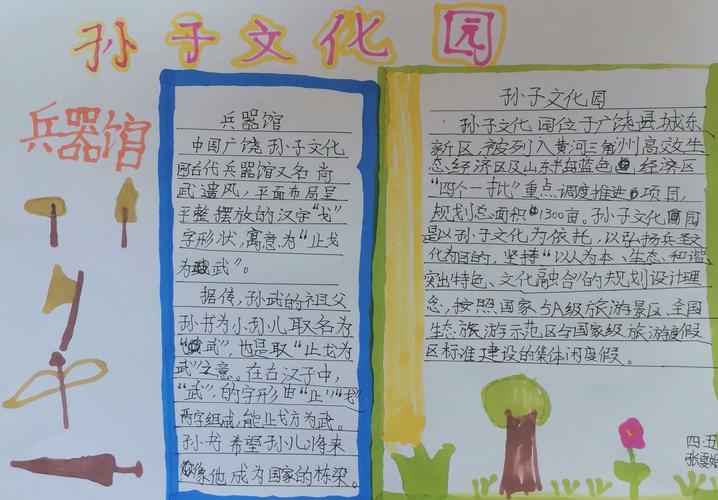 孙子文化园
兵器馆
兵器馆
中国广饶孙子文化
园古代兵器馆又名尚
武遗风，平面布局呈
平整摆放的汉字“戈”
字形状，寓意为“止戈
为武”。
据传，孙武的祖父
孙书为小孙儿取名为
“武”，也是取“止戈为
武”之意。在古汉子中，
“武”，的字形由“止”“戈”
两字组成，能止戈方为武。
孙书希望孙儿将来
像他，成为国家的栋梁。
孙子文化园
孙子文化园位于广饶县城东
新区，被列入黄河三角洲高效生
态经济区及山东半岛蓝色经济区
“四个一批”重点调度推进项目，
规划总面积1300亩。孙子文化园
是以孙子文化为依托，以弘扬兵圣文
化为目的，坚持“以人为本、生态、和谐
突出特色、文化融合”的规划设计理
念，按照国家A级旅游景区、全国
生态旅游示范区与国家级旅游度假
区标准建设的集体闲度假。
四·五
张雯